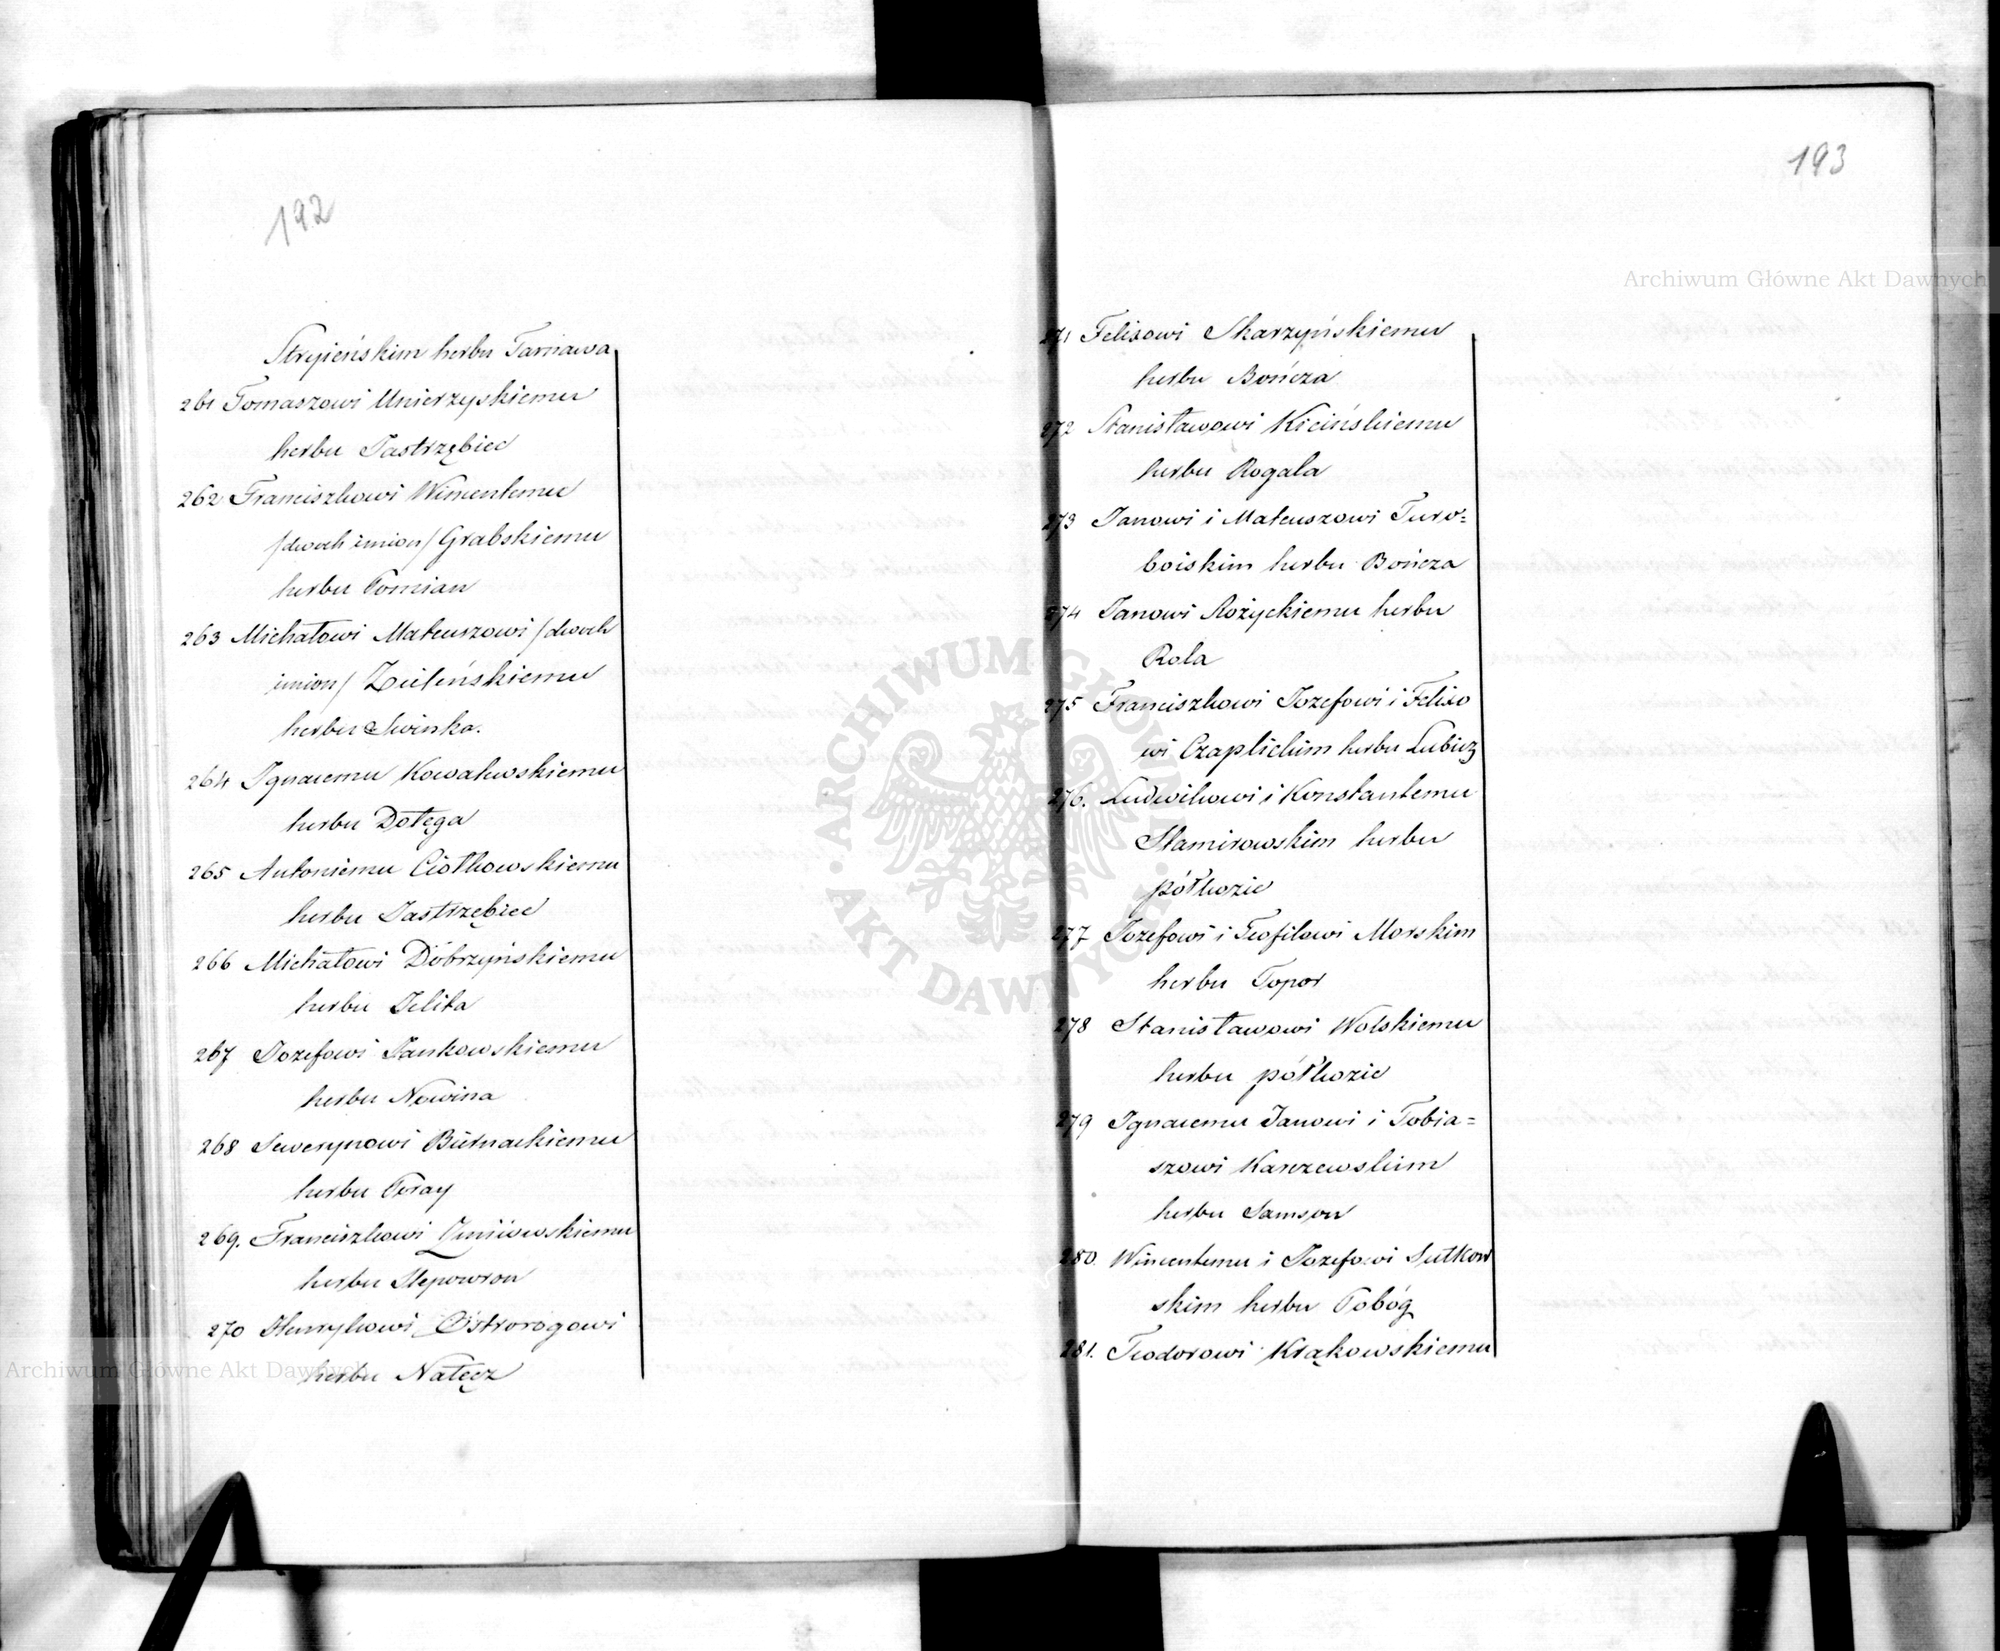 192
Stryieńskim herbu Tarnawa
261 Tomaszowi Unierzyskiemu
herbu Jastrzębiec
262 Franciszkowi Wincentemu
/dwoch imion/ Grabskiemu
herbu Pomian
263 Michałowi Mateuszowi /dwoch
imion/ Zieleńskiemu
herbu Swinka.
264 Ignacemu Kowalewskiemu
herbu Dołęga
265 Antoniemu Ciołkowskiemu
herbu Jastrzębiec
266 Michałowi Dobrzyńskiemu
herbu Jelita
267 Jozefowi Jankowskiemu
herbu Nowina
268 Sewerynowi Biernackiemu
herbu Poray
269. Franciszkowi Żmiiowskiemu
herbu Slepowron
270 Henrykowi Ostrorogowi
herbu Nałęcz
193
271 Felixowi Skarzyńskiemu
herbu Bończa
272 Stanisławowi Kicińskiemu
herbu Rogala
273 Janowi i Mateuszowi Turo=
boiskim herbu Bończa
274 Janowi Rożyckiemu herbu
Rola
275 Franciszkowi Jozefowi i Felixo
wi Czaplickim herbu Lubicz
276. Ludwikowi i Konstantemu
Stamirowskim herbu
półkozic
277 Jozefowi i Teofilowi Morskim
herbu Topor
278 Stanisławowi Wolskiemu
herbu półkozic
279 Ignacemu Janowi i Tobia=
szowi Karczewskim
herbu Samson
280. Wincentemu i Jozefowi Sutkow
skim herbu Pobóg
281. Teodorowi Krąkowskiemu
Archiwum Główne Akt Dawnych
Archiwum Główne Akt Dawnych
· ARCHIWUM GŁÓWNE · AKT DAWNYCH